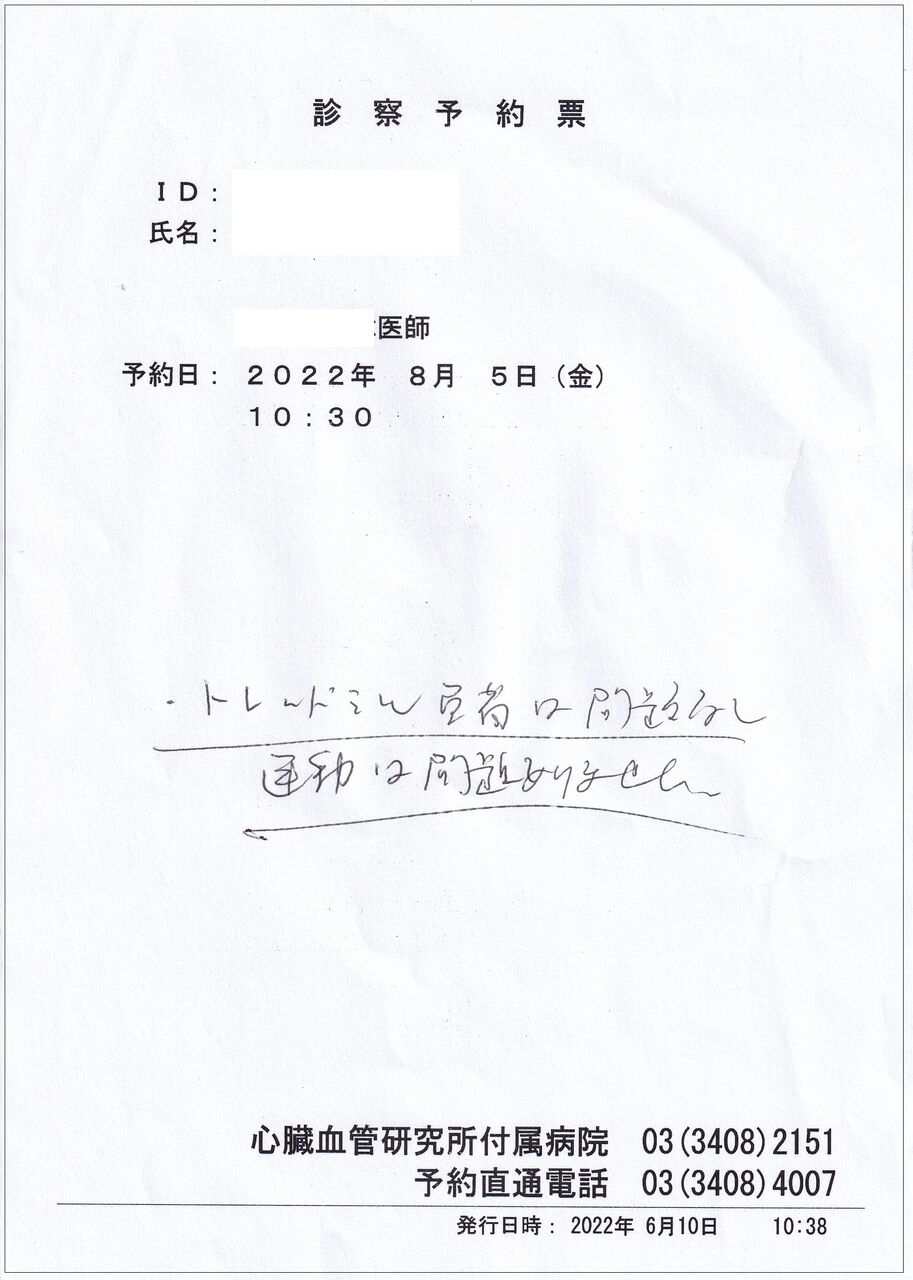 診察予約票
ＩＤ：
氏名：
医師
予約日： ２０２２年 ８月 ５日（金）
１０：３０
・トレッドミル は問題なし
運動は問題ありません
心臓血管研究所付属病院 03(3408)2151
予約直通電話 03(3408)4007
発行日時： 2022年 6月10日 10:38